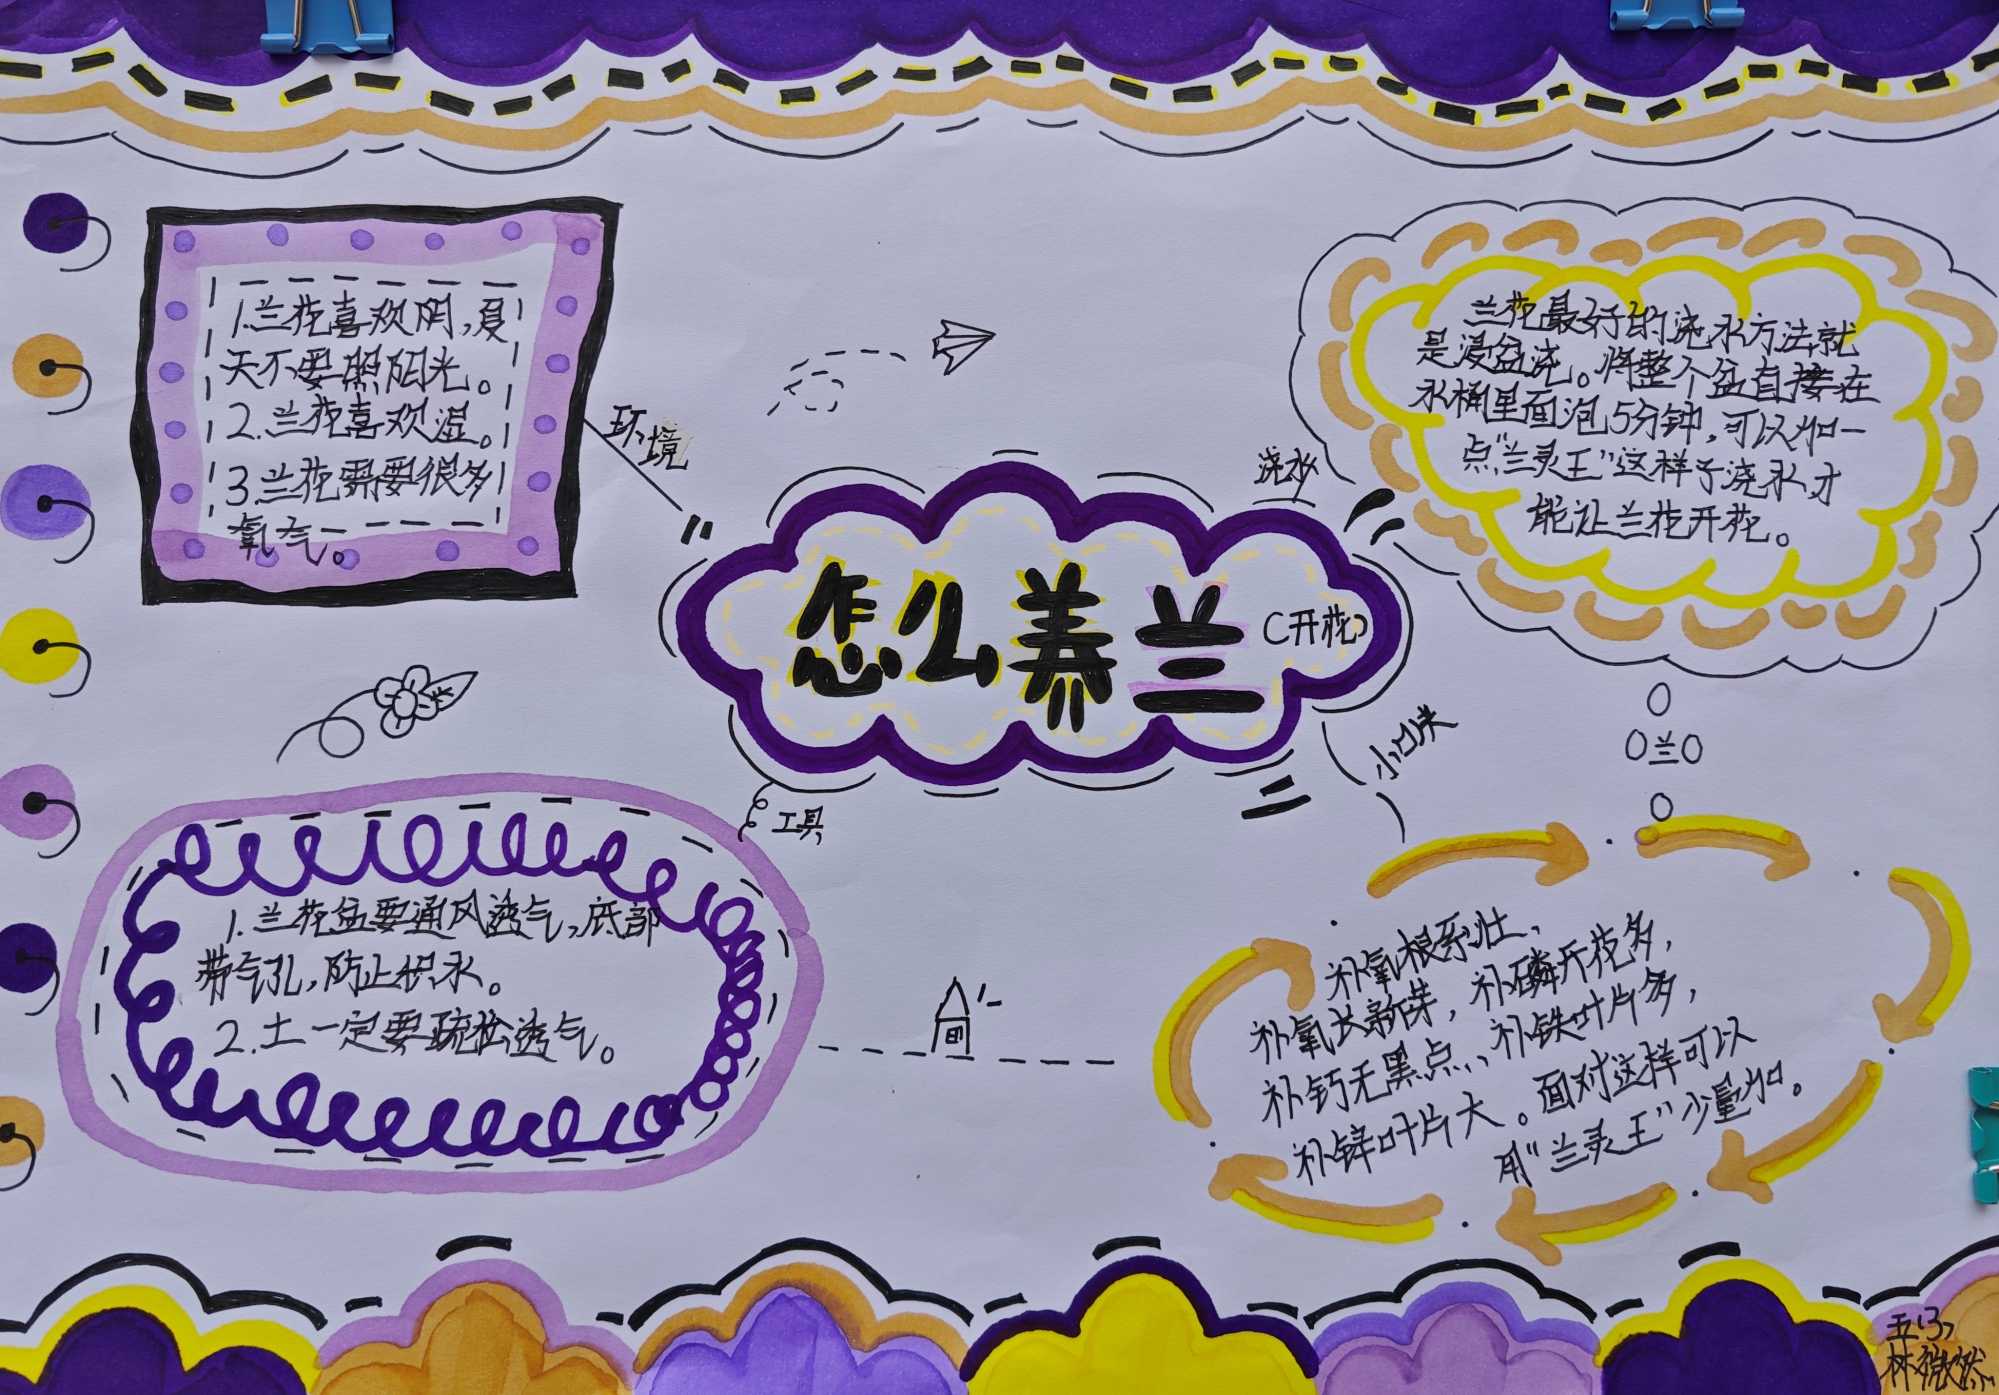 怎么养兰
(开花)
环境
1.兰花喜欢阴,夏
天不要照阳光。
2.兰花喜欢湿。
3.兰花需要很多
氧气。
浇水
兰花最好的浇水方法就
是浸盆浇。将整个盆直接在
水桶里面泡5分钟,可以加一
点"兰灵王"这样子浇水才
能让兰花开花。
工具
1.兰花盆要通风透气,底部
带气孔,防止积水。
2.土一定要疏松透气。
兰
补氧根系壮、
补氧长新芽,补磷开花多,
补钙无黑点、补铁叶片多,
补锌叶片大。面对这样可以
用"兰灵王"少量加。
五(3)
林微然